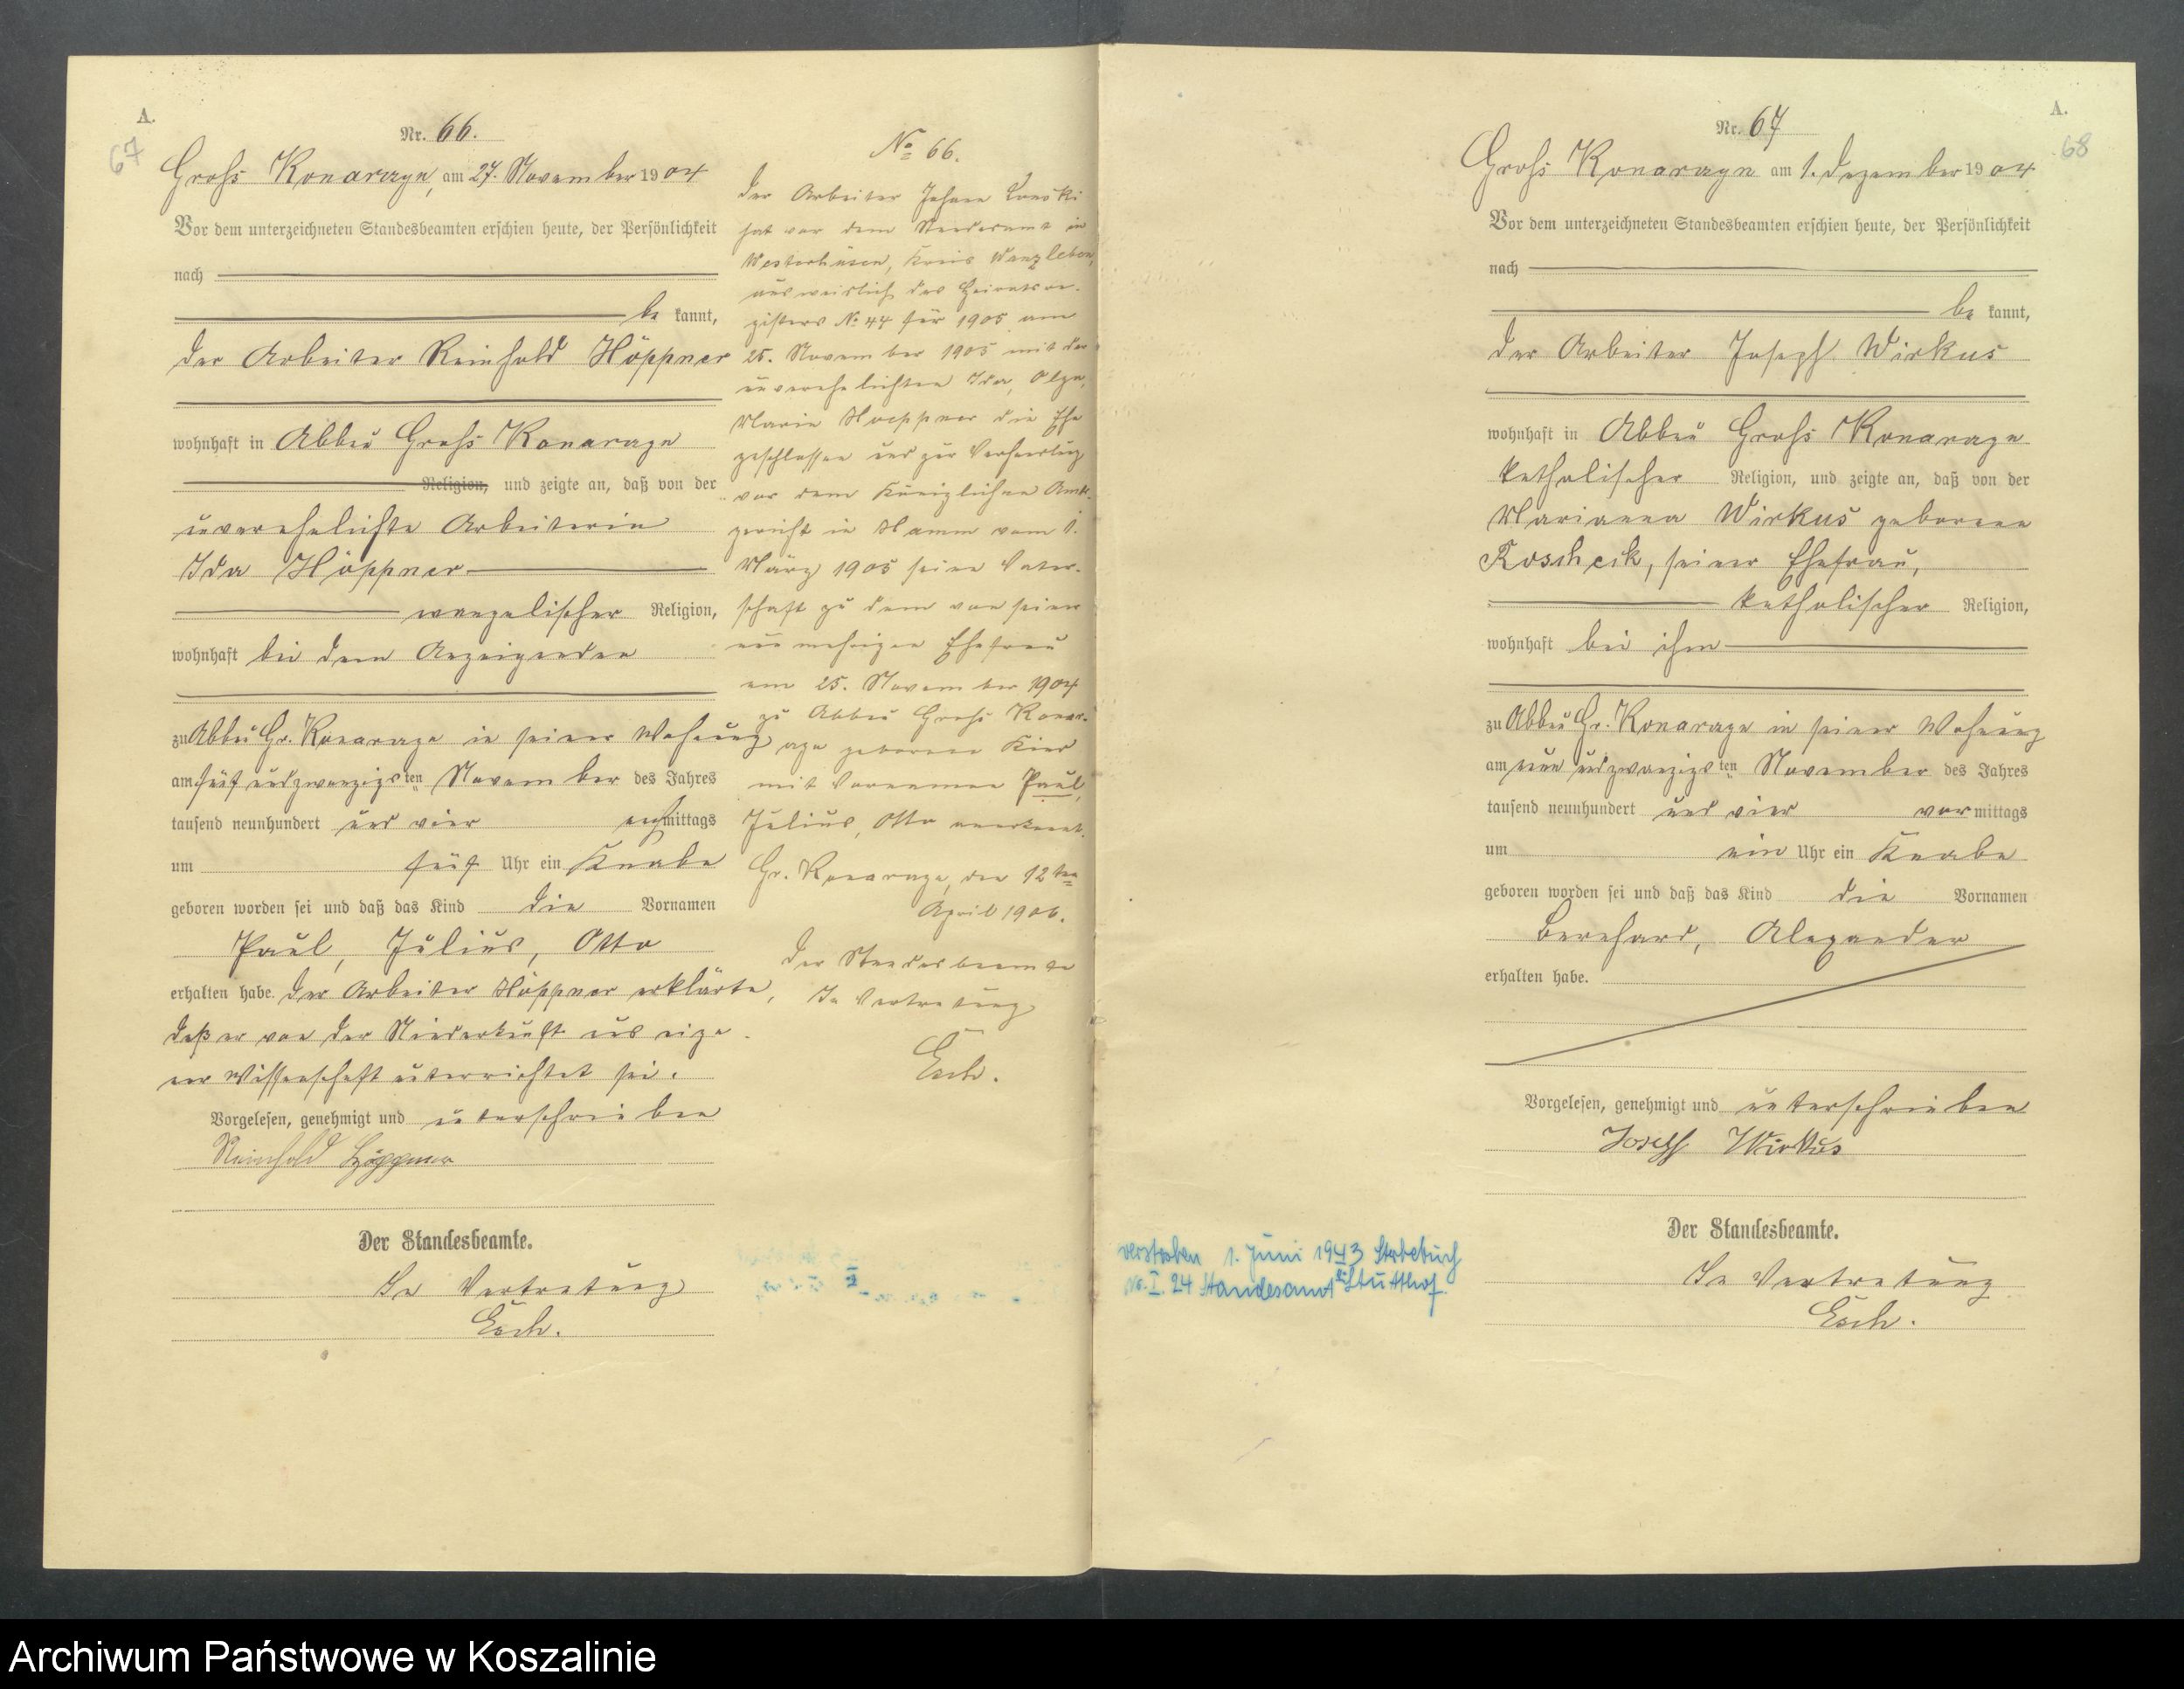 A.
67
Nr. 66.
Groß Konarzyn, am 27. November 1904
Vor dem unterzeichneten Standesbeamten erschien heute, der Persönlichkeit
nach
be kannt,
der Arbeiter Reinhold Höppner
wohnhaft in Abbau Groß Konarzyn
Religion, und zeigte an, daß von der
unverehelichte Arbeiterin
Ida Höppner
evangelischer Religion,
wohnhaft bei dem Anzeigenden
zu Abbau Gr. Konarzyn in seiner Wohnung
am fünf und zwanzigsten November des Jahres
tausend neunhundert und vier nachmittags
um fünf Uhr ein Knabe
geboren worden sei und daß das Kind die Vornamen
Paul, Julius, Otto
erhalten habe. Der Arbeiter Höppner erklärte,
daß er von der Niederkunft aus eige-
ner Wissenschaft unterrichtet sei.
Vorgelesen, genehmigt und unterschrieben
Reinhold Höppner
Der Standesbeamte.
In Vertretung
Esch.
No 66.
Der Arbeiter Johann
hat vor dem Standesamt in
Westerhüsen, Kreis Wanzleben,
ausweislich des Heiratsre-
gisters No 44 für 1905 am
25. November 1905 mit der
unverehelichten Ida, Olga,
Marie Hoeppner die Ehe
geschlossen und zur Verhandlung
vor dem Königlichen Amts-
gericht in Hamm vom 1.
März 1905 seine Vater-
schaft zu dem von seiner
nunmehrigen Ehefrau
am 25. November 1904
zu Abbau Groß Konar-
zyn geborene Kind
mit Vornamen Paul,
Julius, Otto anerkannt.
Gr. Konarzyn, den 12ten
April 1906.
Der Standesbeamte
In Vertretung
Esch.
A.
68
Nr. 67
Groß Konarzyn am 1. Dezember 1904
Vor dem unterzeichneten Standesbeamten erschien heute, der Persönlichkeit
nach
be kannt,
der Arbeiter Joseph Wirkus
wohnhaft in Abbau Groß Konarzyn
katholischer Religion, und zeigte an, daß von der
Marianna Wirkus geborene
Koscheck, seiner Ehefrau,
katholischer Religion,
wohnhaft bei ihm
zu Abbau Gr. Konarzyn in seiner Wohnung
am neun und zwanzigsten November des Jahres
tausend neunhundert und vier vormittags
um ein Uhr ein Knabe
geboren worden sei und daß das Kind die Vornamen
Bernhard, Alexander
erhalten habe.
Vorgelesen, genehmigt und unterschrieben
Josef Wirkus
Der Standesbeamte.
In Vertretung
Esch.
verstorben 1. Juni 1943 Sterbebuch
No. I. 24 Standesamt Stutthof
Archiwum Państwowe w Koszalinie